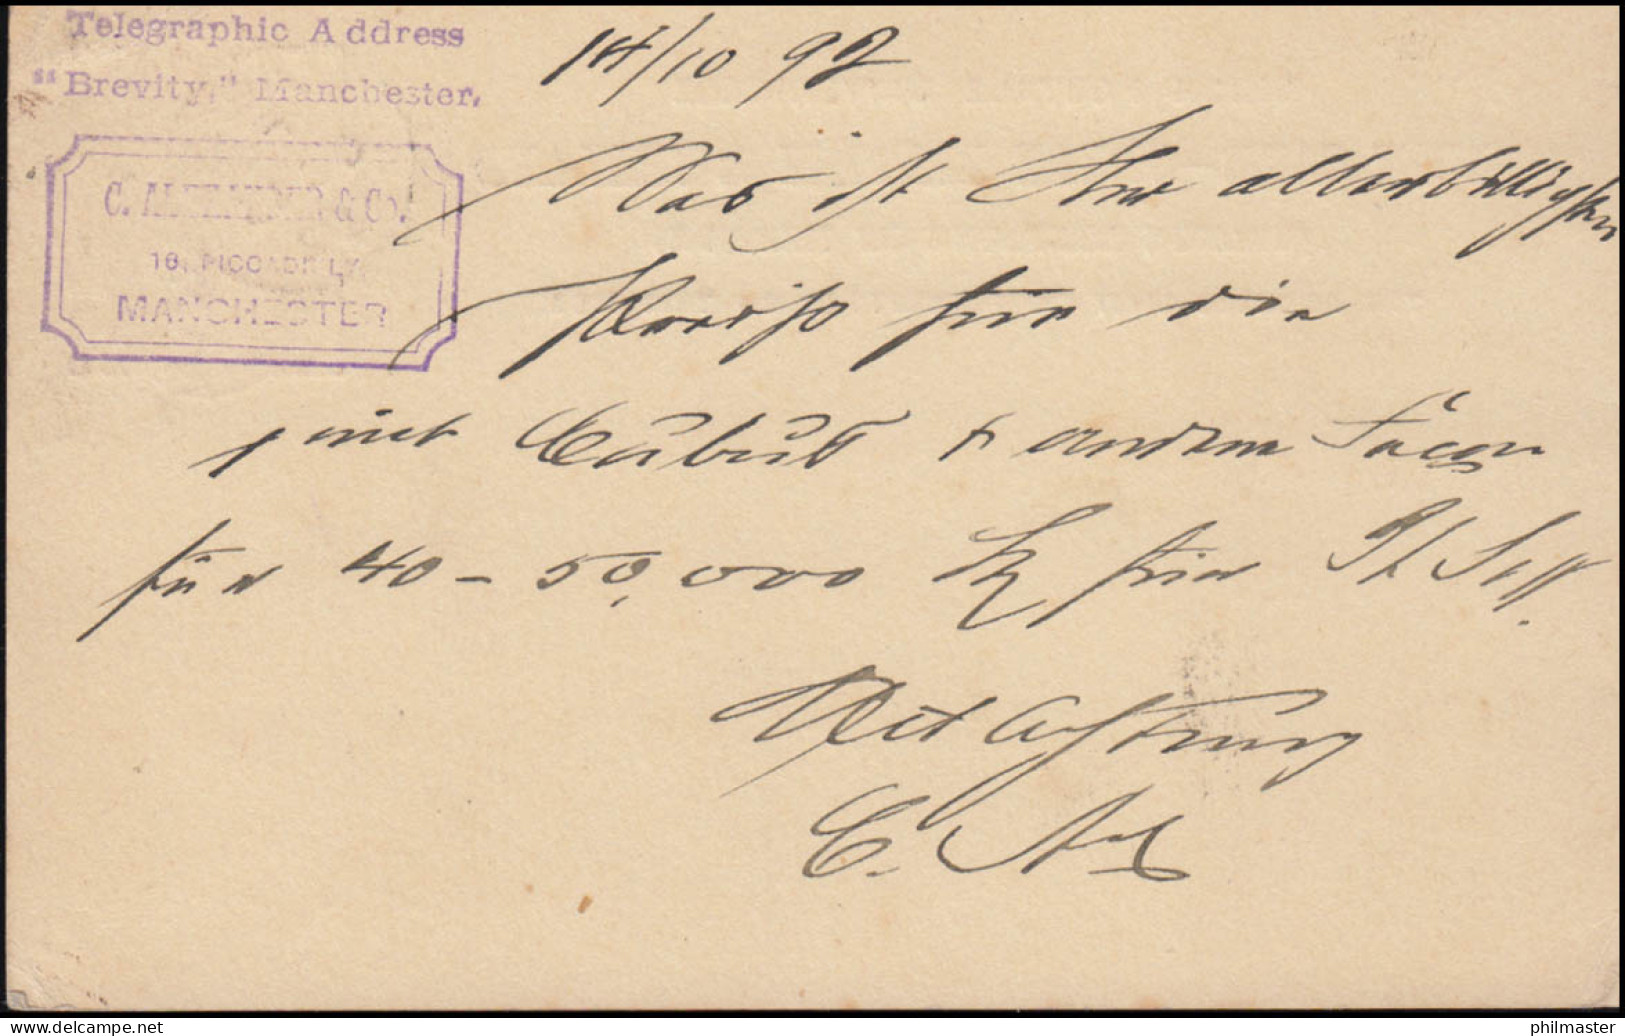 Telegraphic Address
"Brevity," Manchester.
C. ALEXANDER & Co.
16, PICCADILLY,
MANCHESTER
14/10 92
Was ist Ihr allerbilligster
Preis für die
mit & andern Façon
für 40 - 50,000 für
Mit Achtung
C.
philmaster